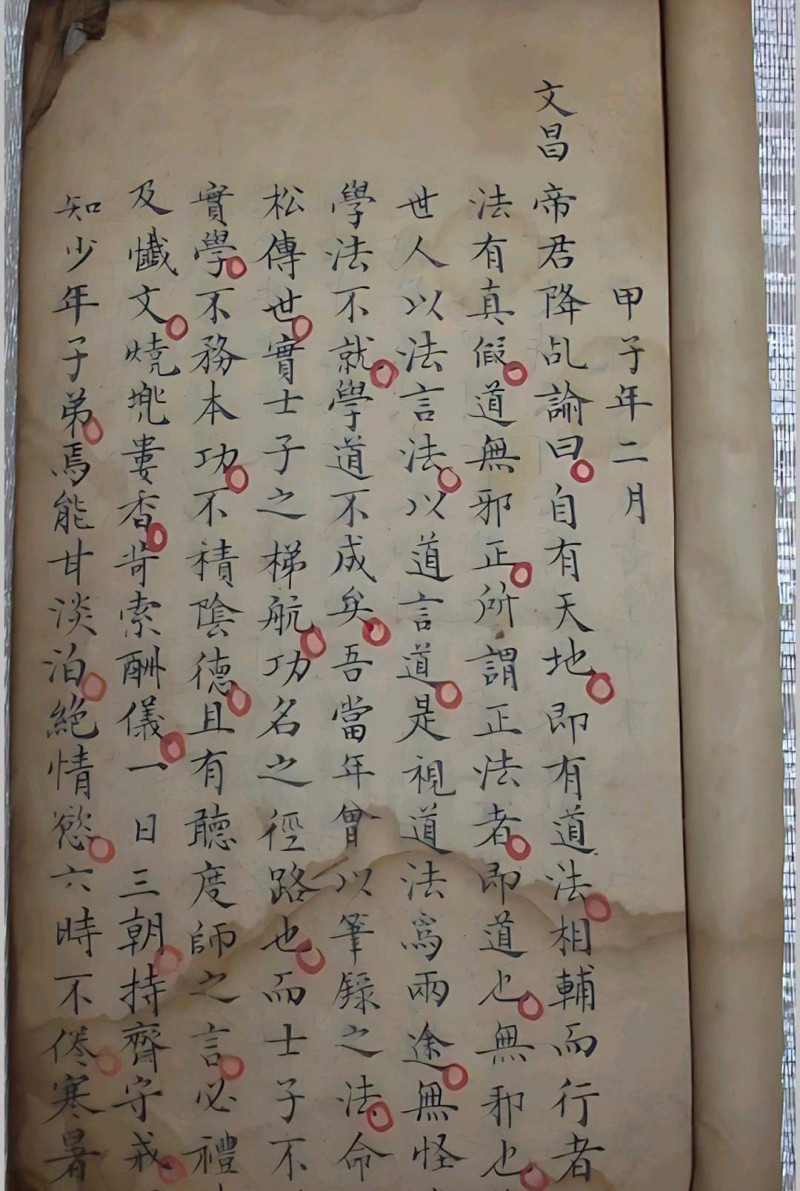 甲子年二月
文昌帝君降乩諭曰自有天地即有道法相輔而行者
法有真假道無邪正所謂正法者即道也無邪也
世人以法言法以道言道是視道法爲兩途無怪
學法不就學道不成矣吾當年曾以筆錄之法命
松傳世實士子之梯航功名之徑路也而士子不
實學不務本功不積陰德且有聽度師之言必禮
及懺文燒兠婁香苛索酬儀一日三朝持齊守戒
知少年子弟焉能甘淡泊絕情慾六時不倦寒暑